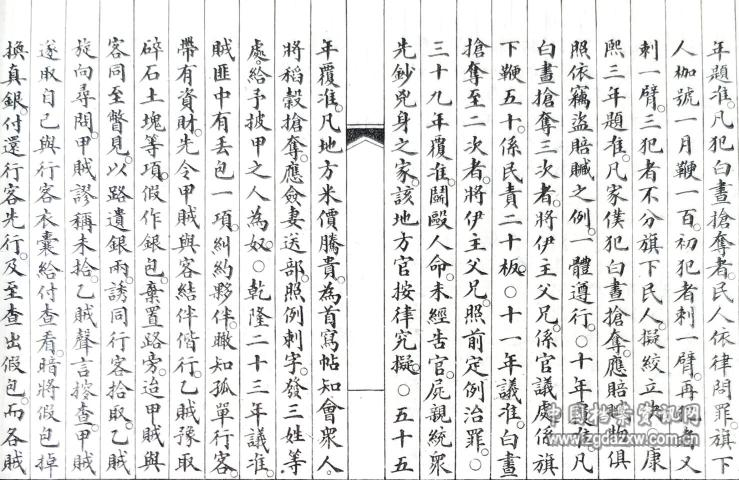 年題准。凡犯白晝搶奪者。民人依律問罪。旗下
人枷號一月鞭一百。初犯者刺一臂。再犯者又
刺一臂。三犯者不分旗下民人。擬絞立決。○康
熙三年題准。凡家僕犯白晝搶奪。應賠贓物。俱
照依竊盜賠贓之例。一體遵行。○十年議准。凡
白晝搶奪三次者。將伊主父兄。係官議處。係旗
下鞭五十。係民責二十板。○十一年議准。白晝
搶奪至二次者。將伊主父兄。照前定例治罪。○
三十九年覆准。鬭毆人命。未經告官。屍親統衆
先鈔兇身之家。該地方官按律究擬。○五十五
年覆准。凡地方米價騰貴。為首寫帖知會衆人。
將稻穀搶奪。應僉妻送部。照例刺字。發三姓等
處。給予披甲之人為奴。○乾隆二十三年議准。
賊匪中有丟包一項。糾約夥伴。瞰知孤單行客。
帶有資財。先令甲賊與客結伴偕行。乙賊豫取
碎石土塊等項。假作銀包。棄置路旁。迨甲賊與
客同至瞥見。以路遺銀兩。誘同行客拾取。乙賊
旋向尋問。甲賊謬稱未拾。乙賊聲言搜查。甲賊
遂取自己與行客衣囊。給付查看。暗將假包掉
換真銀。付還行客先行。及至查出假包。而各賊
中国档案资讯网
www.zgdazxw.com.cn